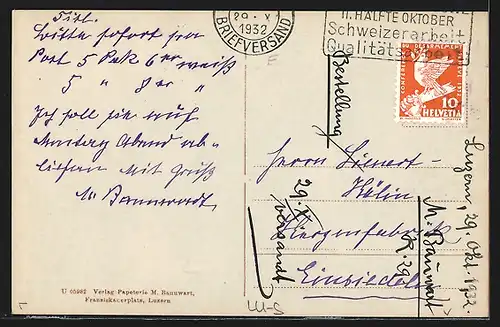 Titl.
Bitte sofort per
Post 5 Pak 6er weiß
5 " 8er "
Ich soll sie auf
Montag Abend ab-
liefern Mit Gruß
M. Bannwart
U 05982 Verlag Papeterie M. Bannwart,
Franziskanerplatz, Luzern
29. X.
1932
BRIEFVERSAND
II. HÄLFTE OKTOBER
Schweizerarbeit
Qualitäts
CONFERENCE DU DESARMEMENT
10
HELVETIA
Bestellung
Herrn Lienert-
Kälin
Kerzenfabrik
Einsiedeln
29. X.
versandt
Luzern, 29. Okt. 1932.
M. Bannwart